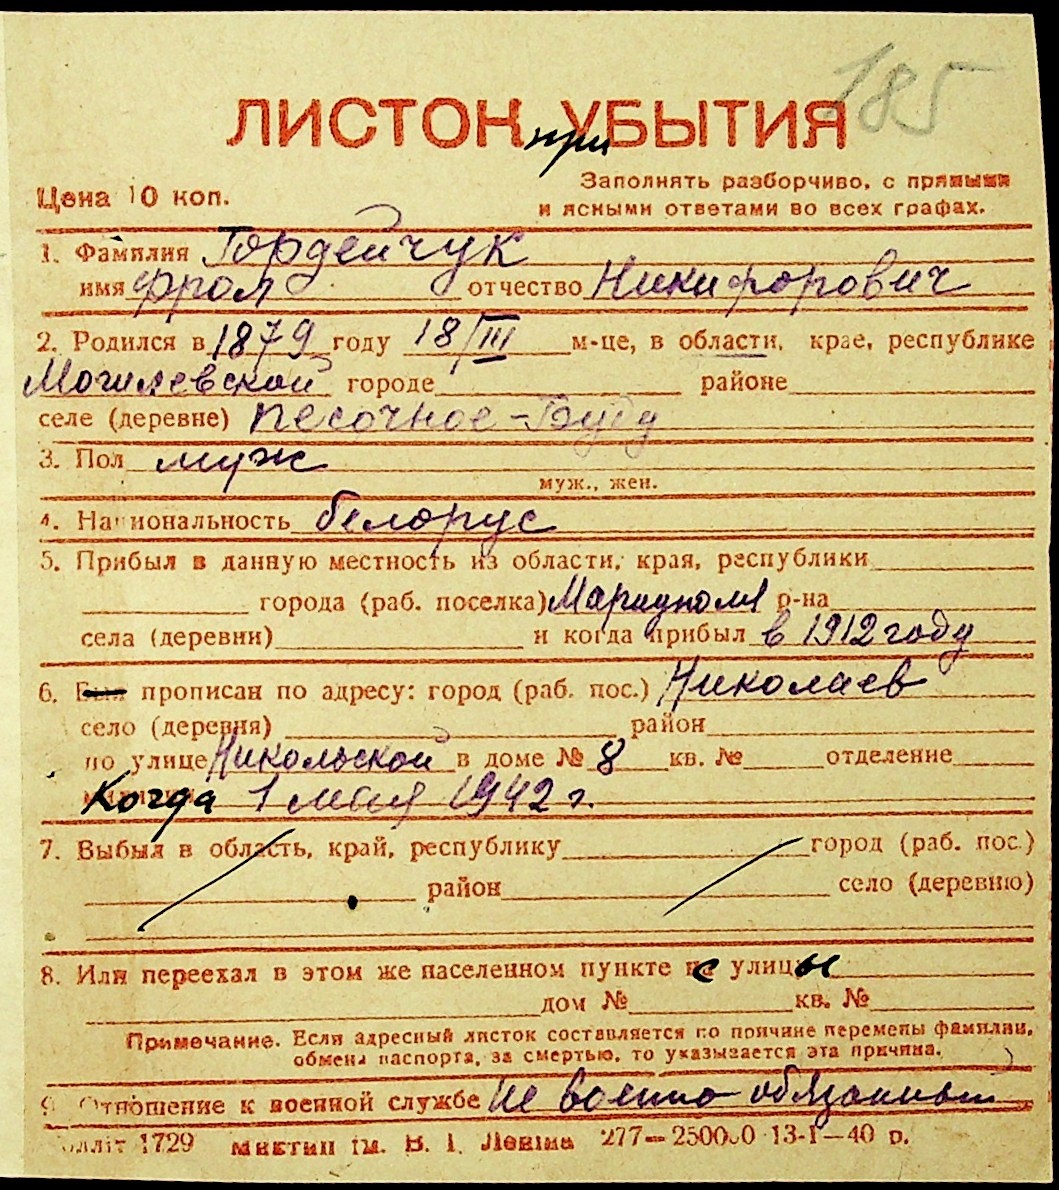 185
ЛИСТОК приУБЫТИЯ
Цена 10 коп.
Заполнять разборчиво, с прямыми
и ясными ответами во всех графах.
1. Фамилия Гордейчук
имя Фрол отчество Никифорович
2. Родился в 1879 году 18/III м-це, в области, крае, республике
Могилевской городе районе
селе (деревне) Песочное-Буду
3. Пол муж
муж., жен.
4. Национальность белорус
5. Прибыл в данную местность из области, края, республики
города (раб. поселка) Мариуполя р-на
села (деревни) и когда прибыл в 1912 году
6. Был прописан по адресу: город (раб. пос.) Николаев
село (деревня) район
по улице Никольской в доме № 8 кв. № отделение
Когда 1 мая 1942 г.
7. Выбыл в область, край, республику город (раб. пос.)
район село (деревню)
8. Или переехал в этом же населенном пункте с улицы
дом № кв. №
Примечание. Если адресный листок составляется по причине перемены фамилии,
обмена паспорта, за смертью, то указывается эта причина.
9. Отношение к военной службе не военно обязанный
олліт 1729 ім. В. І. Леніна 277—250000 13-I—40 р.